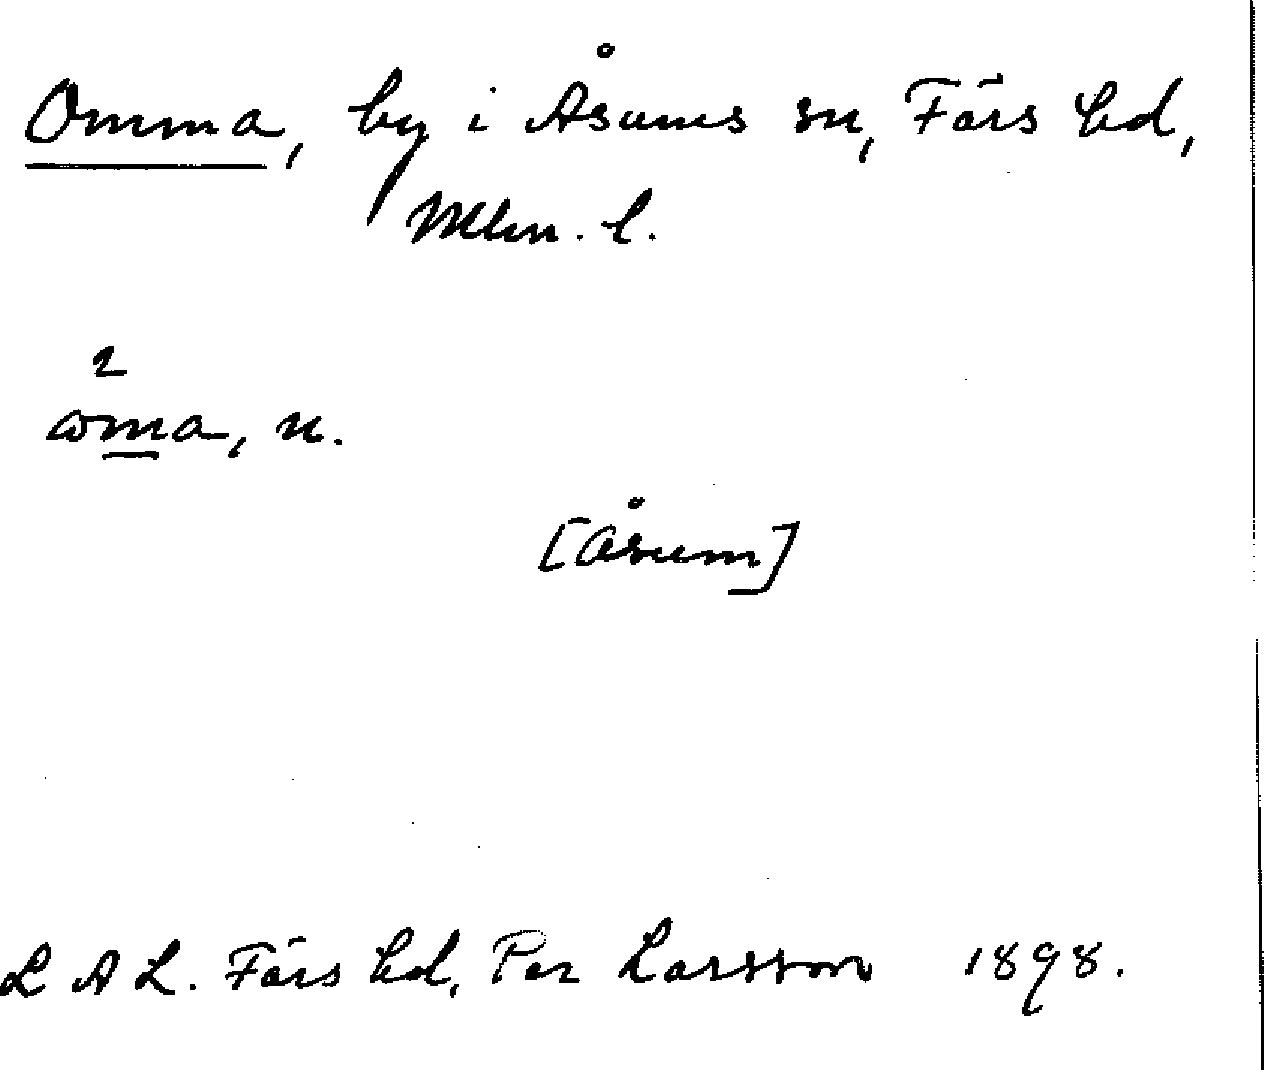 Omma, by i Åsums sn, Färs hd,
Mlm. l.
2
ɷma, n.
[Åsum]
L A L. Färs hd, Per Larsson 1898.